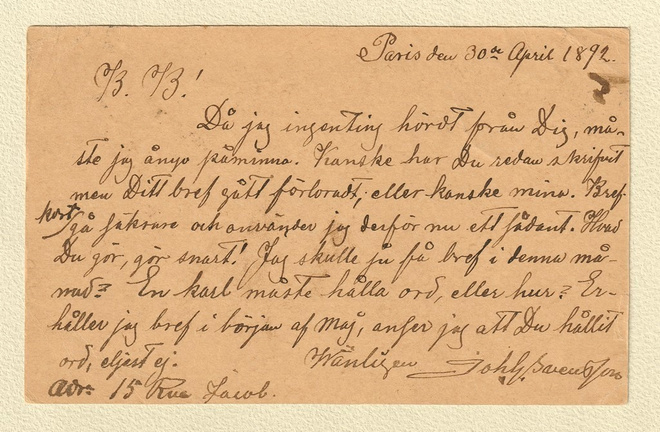 Paris den 30de April 1892.
B. B.!
Då jag ingenting hördt från Dig, må-
ste jag ånyo påminna. Kanske har Du redan skrifvit
men Ditt bref gått förloradt, eller kanske mina. Bref-
kort gå säkrare och använder jag derför nu ett sådant. Hvad
Du gör, gör snart! Jag skulle ju få bref i denna må-
nad? En karl måste hålla ord, eller hur? Er-
håller jag bref i början af Maj, anser jag att Du hållit
ord, eljest ej. Vänligen Joh G. Svensson
Adr: 15 Rue Jacob.